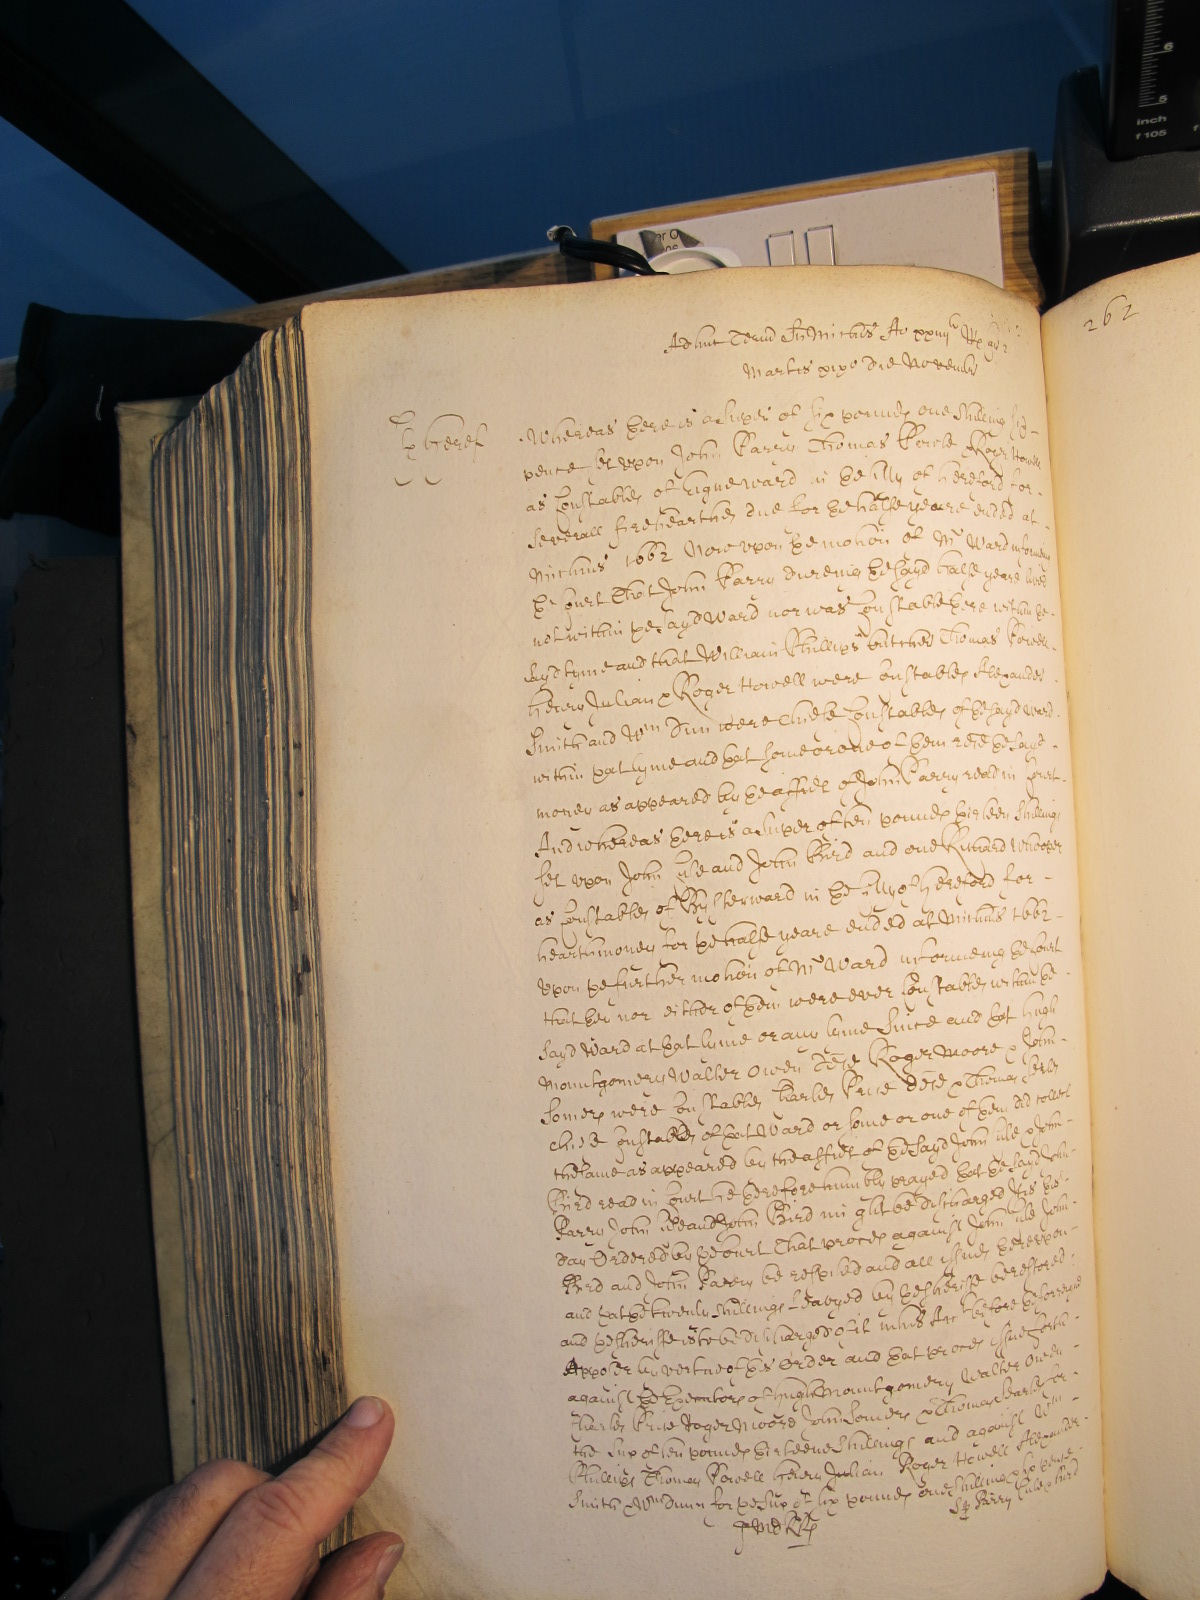 262
Martis xixo die Novembr
Hereff
Whereas there is a super of six pounds one shilling six
pence set upon John Parry Thomas Powle & Roger Howell
as Constables of Wigneward in the Citty of Hereford for
severall firehearthes due for the halfe yeare ended at
Michas 1662 Now upon the motion of Mr Ward informing
the Court That John Parry dureing the sayd halfe yeare lived
not within the sayd Ward nor was Constable there within the
sayd tyme and that William Phillips butcher Thomas Powell
Henry Julian & Roger Howell were Constables Alexander
Smith and Wm Dun were Chiefe Constables of the sayd Ward
within that tyme and that some or one of them rece the sayd
money as appeared by the affid of John Parry read in Court
And whereas there is a super of ten pounds thirteen shillings
set upon John Lile and John Bird and one Richard Whooper
as Constables of Bysterward in the Citty of Hereford for
hearthmoney for the halfe yeare ended at Michas 1662
Upon the further motion of Mr Ward informeing the Court
that they nor either of them were ever Constables within the
sayd Ward at that tyme or any tyme since and that Hugh
Mountgomery Walter Owen dece Roger Moore & John
Somers were Constables Charles Price dece & Thomas Searle
chiefe Constables of that Ward or some or one of them did collect
the same as appeared by the affid of the sayd John Lile & John
Bird read in Court he therefore humbly prayed that the sayd John
Parry John Lile and John Bird might be discharged Itt is this
day Ordered by the Court That proces against John Lile John
Bird and John Parry be respited and all issues thereupon
and that the twenty shillings Leavyed by the Sheriffe be restored
and the Sheriffe is to be discharged of it before the forreigne
Apposer by vertue of this Order and that proces issue forth
against the Executors of Hugh Mountgomery Walter Owen
Charles Price Roger Moore John Somers & Thomas Searle for
the sup of ten pounds thirteene shillings and against Wm
Phillips Thomas Powell Henry Julian Roger Howell Alexander
Smith Wm Dunn for the sup of six pounds one shilling & six pence
Parry Lile & Bird
inch
6
5
f 105